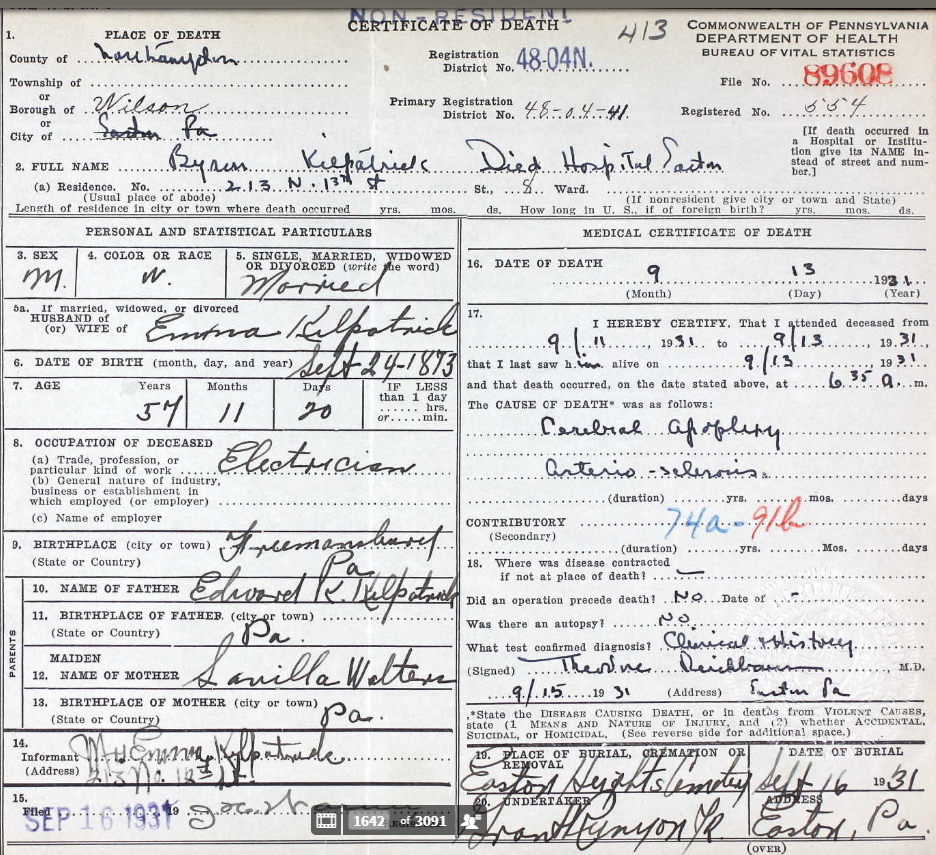 NON-RESIDENT
CERTIFICATE OF DEATH
413
COMMONWEALTH OF PENNSYLVANIA
DEPARTMENT OF HEALTH
BUREAU OF VITAL STATISTICS
1. PLACE OF DEATH
County of Northampton
Registration District No. 48-04N.
File No. 89608
Township of
or
Borough of Wilson
Primary Registration District No. 48-04-41
Registered No. 554
or
City of Easton Pa
[If death occurred in a Hospital or Institution give its NAME instead of street and number.]
2. FULL NAME Byron Kilpatrick Died Hospital Easton
(a) Residence. No. 213 N. 13th St St., 8 Ward.
(Usual place of abode)
(If nonresident give city or town and State)
Length of residence in city or town where death occurred yrs. mos. ds. How long in U. S., if of foreign birth? yrs. mos. ds.
PERSONAL AND STATISTICAL PARTICULARS
3. SEX
M.
4. COLOR OR RACE
W.
5. SINGLE, MARRIED, WIDOWED
OR DIVORCED (write the word)
Married
5a. If married, widowed, or divorced
HUSBAND of
(or) WIFE of Emma Kilpatrick
6. DATE OF BIRTH (month, day, and year) Sept 24-1873
7. AGE
Years
57
Months
11
Days
20
IF LESS
than 1 day
...... hrs.
or......min.
8. OCCUPATION OF DECEASED
(a) Trade, profession, or
particular kind of work Electrician
(b) General nature of industry,
business or establishment in
which employed (or employer)
(c) Name of employer
9. BIRTHPLACE (city or town) Freemansburg
(State or Country) Pa
PARENTS
10. NAME OF FATHER Edward K. Kilpatrick
11. BIRTHPLACE OF FATHER (city or town)
(State or Country) Pa.
MAIDEN
12. NAME OF MOTHER Savilla Walters
13. BIRTHPLACE OF MOTHER (city or town)
(State or Country) Pa.
14.
Informant Mrs Emma Kilpatrick
(Address) 213 No. 13th St
15.
Filed SEP 16 1931 19
MEDICAL CERTIFICATE OF DEATH
16. DATE OF DEATH
9 13 1931
(Month) (Day) (Year)
17.
I HEREBY CERTIFY, That I attended deceased from
9/11, 1931 to 9/13 1931,
that I last saw him alive on 9/13 1931
and that death occurred, on the date stated above, at 6 35 a. m.
The CAUSE OF DEATH* was as follows:
Cerebral Apoplexy
Arterio-sclerosis
(duration) yrs. mos. days
CONTRIBUTORY 74a-91b
(Secondary)
(duration) yrs. Mos. days
18. Where was disease contracted
if not at place of death?
Did an operation precede death? No Date of -
Was there an autopsy? No
What test confirmed diagnosis? Clinical & History
(Signed) Theodore M.D.
9/15 1931 (Address) Easton Pa
*State the DISEASE CAUSING DEATH, or in deaths from VIOLENT CAUSES,
state (1 MEANS AND NATURE OF INJURY, and (2) whether ACCIDENTAL,
SUICIDAL, or HOMICIDAL. (See reverse side for additional space.)
19. PLACE OF BURIAL, CREMATION OR
REMOVAL
Easton Heights Cemetery
DATE OF BURIAL
Sept 16 1931
20. UNDERTAKER
Grant Runyon Jr.
ADDRESS
Easton, Pa.
(OVER)
1642 of 3091